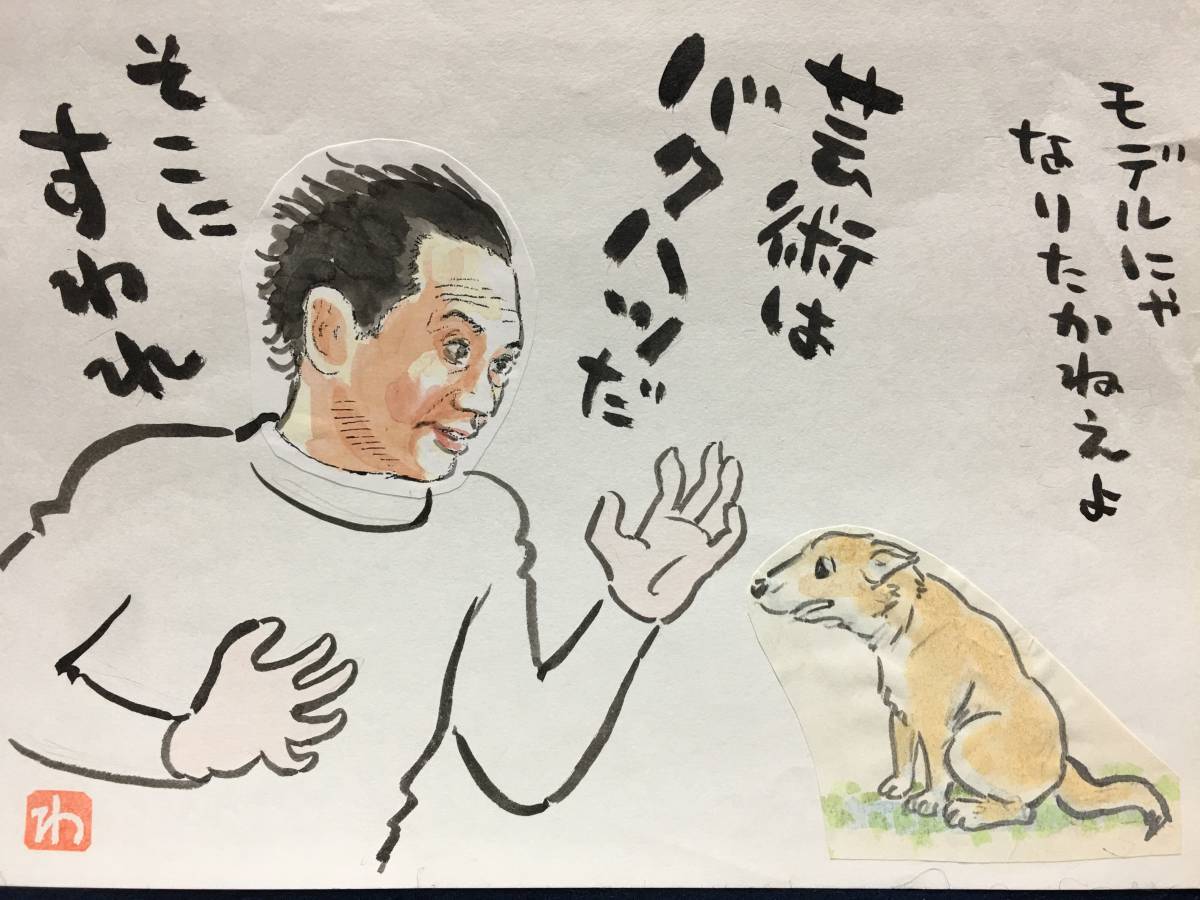 モデルにゃ
なりたかねえよ
芸術は
バクハツだ
そこに
すわれ
わ